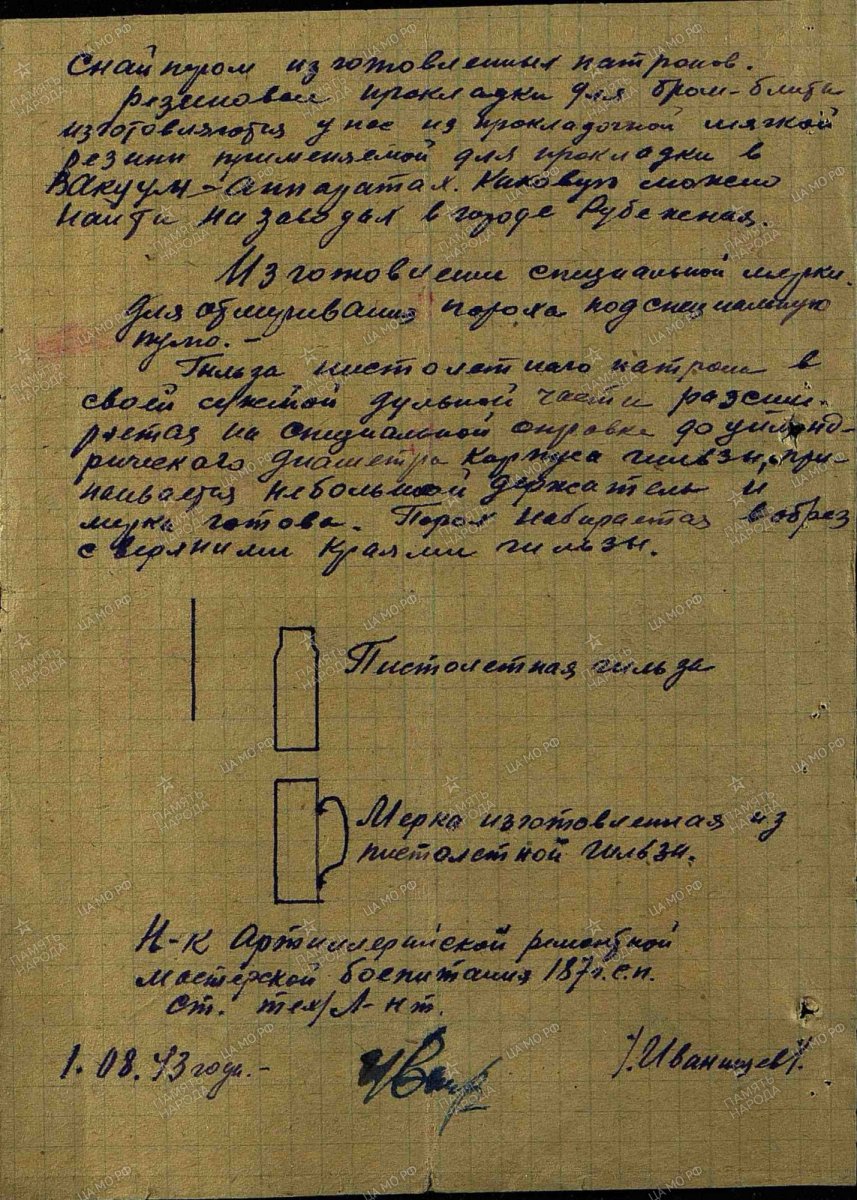 снайпером изготовленных патронов.
Резиновые прокладки для Брам-Блита
изготовляются у нас из прокладочной мягкой
резины применяемой для прокладки в
Вакуум-аппаратах. Каковую можно
найти на заводах в городе Рубежная.
Изготовлении специальной мерки
для отмеривания пороха под специальную
пулю.-
Гильза пистолетного патрона в
своей сжатой дульной части разши-
ряется на специальной оправке до цилинд-
рического диаметра корпуса гильзы, при-
паивается небольшой держатель и
мерка готова. Порох набирается в обрез
с верхними краями гильзы.
Пистолетная гильза
Мерка изготовленная из
пистолетной гильзы.
Н-к Артиллерийской ремонтной
мастерской боепитания 187 г.с.п.
ст. тех/Л-нт.
1.08.43 года.-
/.Иванищев/.
ПАМЯТЬ НАРОДА
ЦА МО РФ